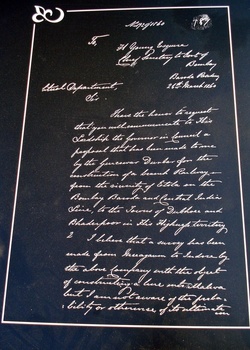 To,
H Young Esquire
Chief Secretary to Govt of
Bombay
Baroda Residency
28th March 1860
Political Department,
Sir
I have the honor to request
that you will communicate to His
Lordship the Governor in Council a
proposal that has been made to me
by the Guicowar Durbar for the
construction of a branch Railway
from the vicinity of Etola on the
Bombay Baroda and Central Indian
Line, to the Towns of Dubhoee and
Bhaderpoor in His Highness' territory
2 I believe that a survey has been
made from Meeagaum to Indore by
the above Company with the object
of constructing a line into Malwa
but I am not aware of the proba-
bility or otherwise of its ultimate